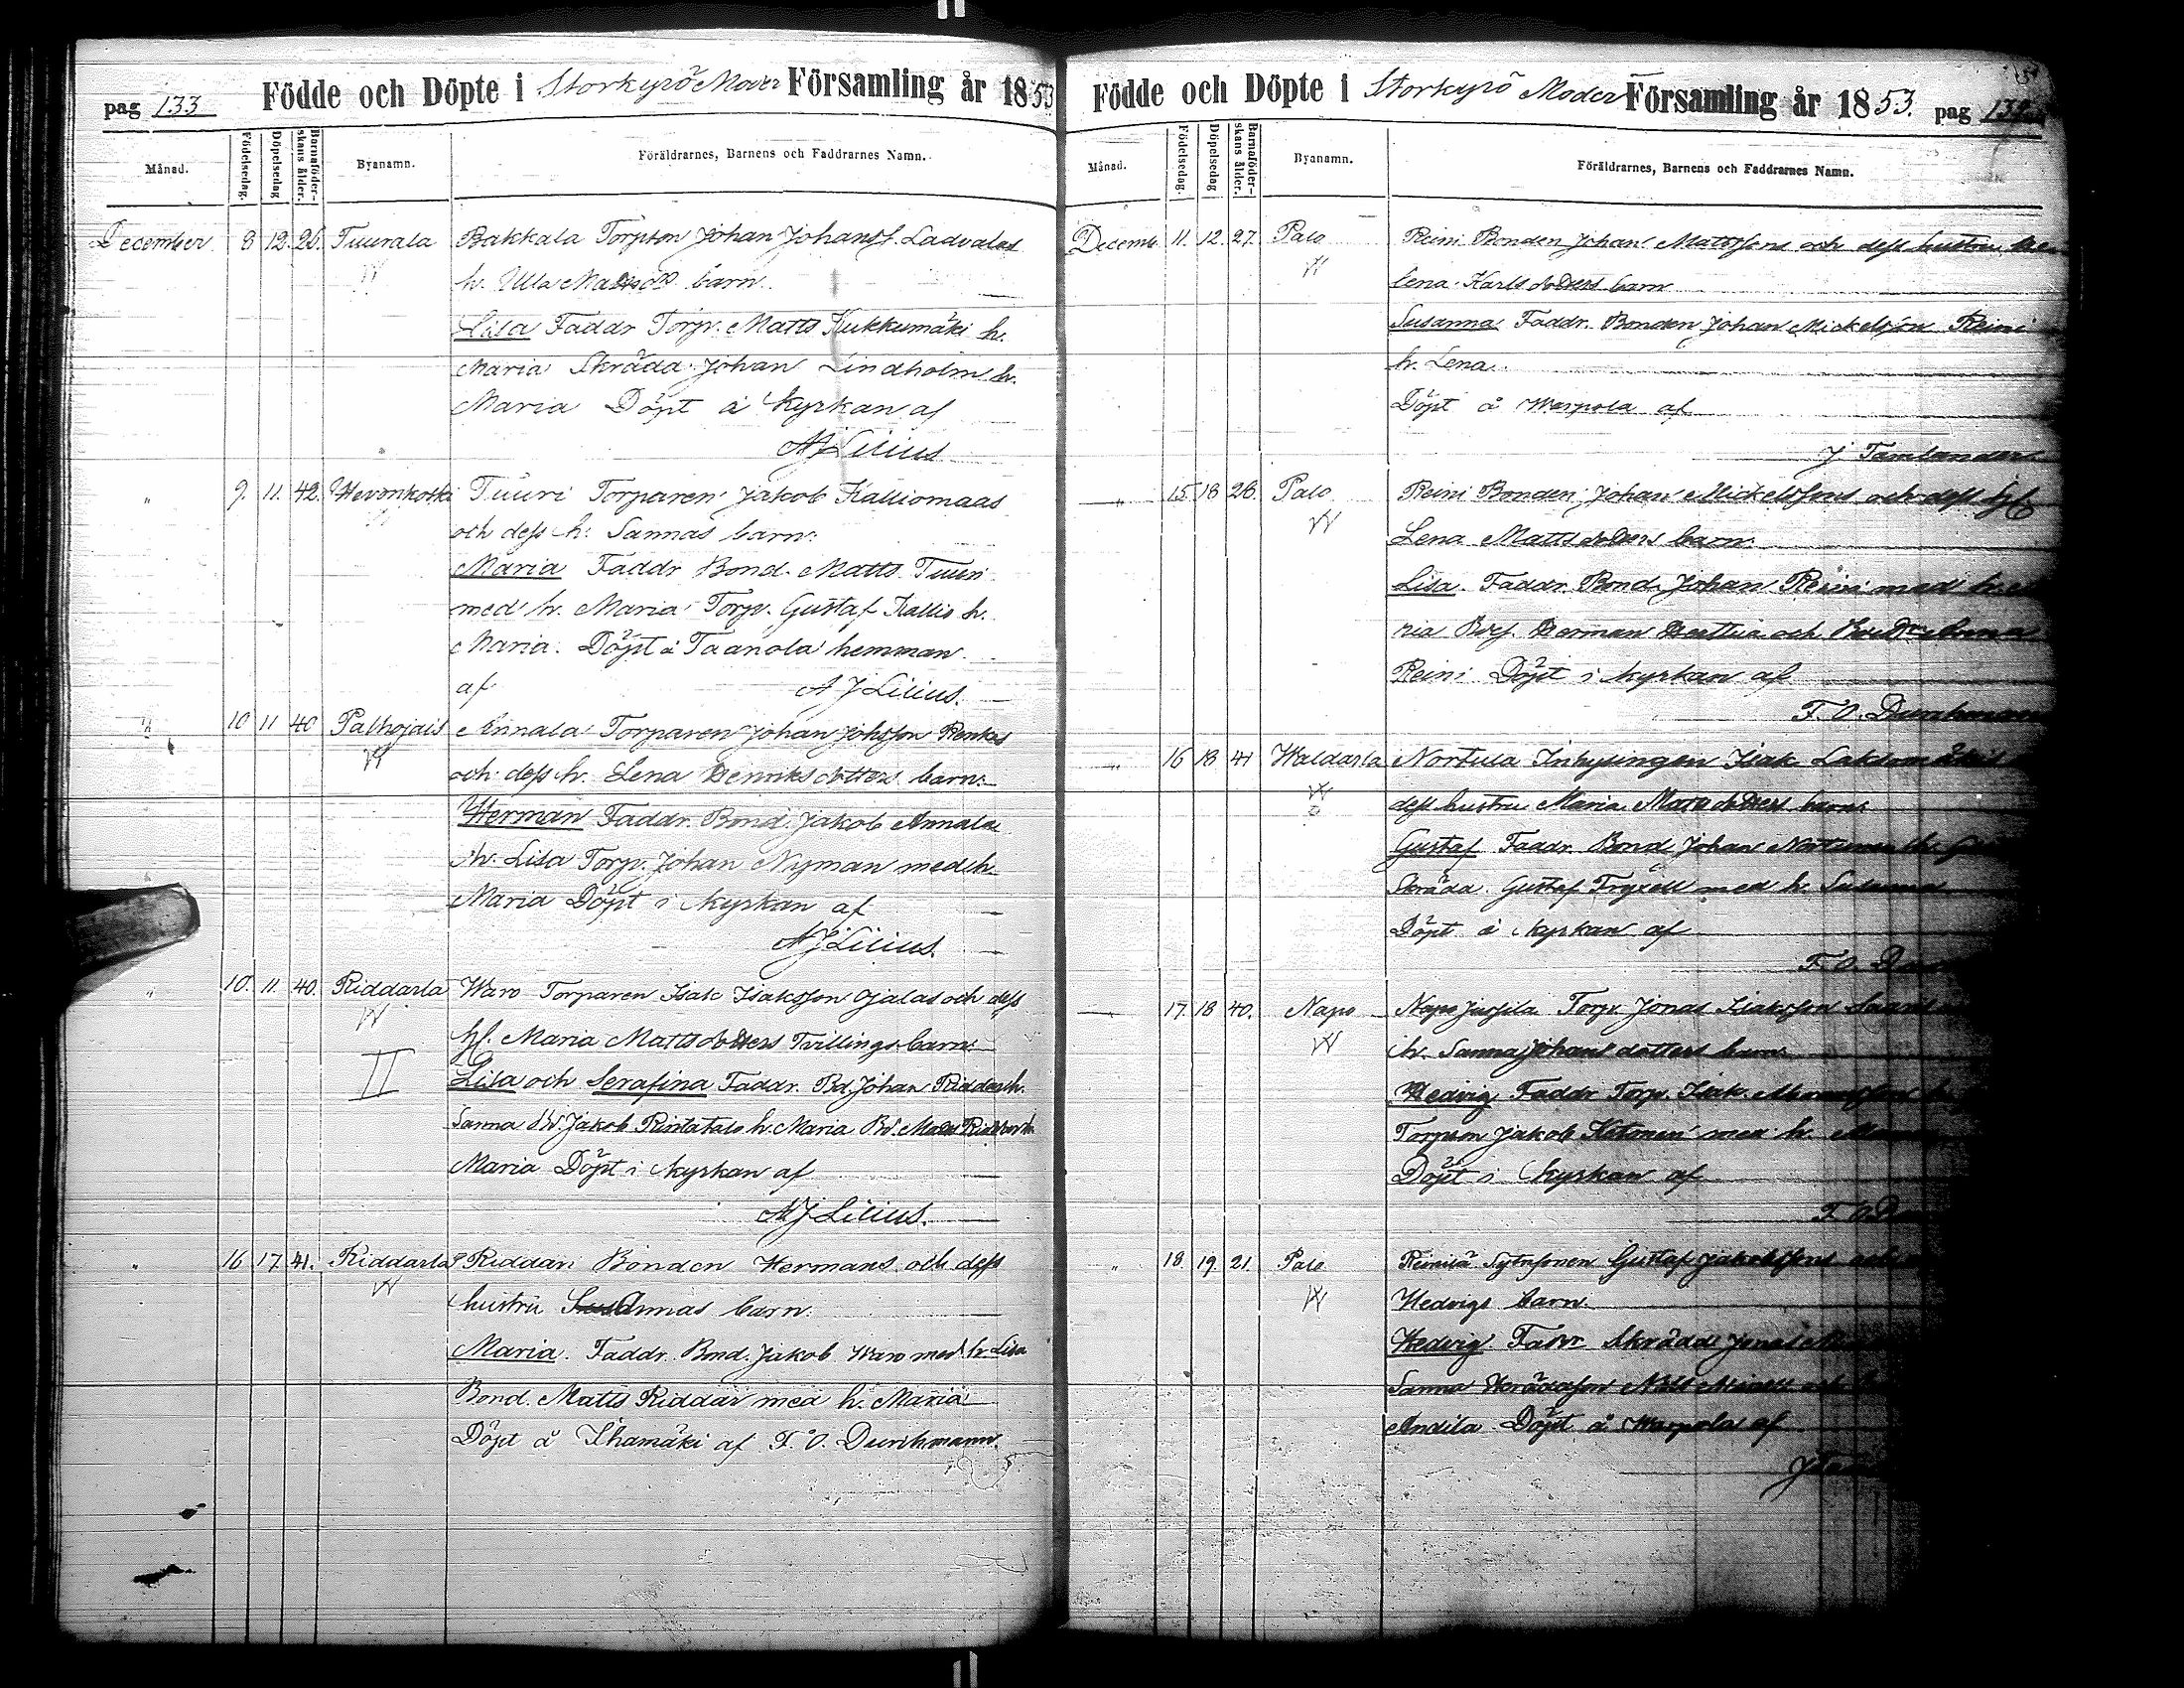 pag 133 Födde och Döpte i Storkyrö Moder Församling år 1853
Månad. Födelsedag. Döpelsedag Barnaföderskans ålder. Byanamn. Föräldrarnes, Barnens och Faddrarnes Namn.
December 8 12 26. Tuurala Bakkala Torpson Johan Johanss. Ladvalas
h. Ulla Mattsd barn.
Lisa Faddr Torp. Matts Kukkumäki h.
Maria Skrädd. Johan Lindholm h.
Maria Döpt å Kyrkan af
A J Lilius
" 9. 11. 42. Hevonkoski Tuuri Torparen Jakob Kalliomaas
och dess h. Sannas barn.
Maria Faddr Bond. Matts Tuuri
med h. Maria Torp. Gustaf Kallio h.
Maria. Döpt å Taanola hemman
af A J Lilius.
" 10 11 40 Palhojais Annala Torparen Johan Johsson Renkos
och dess h. Lena Henriksdotters barn.
Herman Faddr. Bond. Jakob Annala
h. Lisa Torp. Johan Nyman med h.
Maria Döpt i kyrkan af
A J Lilius.
" 10. 11. 40. Riddarla Waro Torparen Isak Isaksson Ojalas och dess
II hf. Maria Mattsdotters Tvillings barn.
Lisa och Serafina Faddr. Bd. Johan Riddar h.
Sanna Bd. Jakob Rintatalo h. Maria Bd. Matts Riddar h.
Maria Döpt i kyrkan af
A J Lilius.
" 16 17 41. Riddarla Riddari Bonden Hermans och dess
hustru Annas barn.
Maria. Faddr. Bond. Jakob Waro med h. Lisa
Bond. Matts Riddar med h. Maria
Döpt å Ihamäki af F. O. Durchman.
Födde och Döpte i Storkyrö Moder Församling år 1853. pag 134
Månad. Födelsedag. Döpelsedag Barnaföderskans ålder. Byanamn. Föräldrarnes, Barnens och Faddrarnes Namn.
Decemb. 11. 12. 27. Palo Reini Bonden Johan Mattssons och dess hustru
lena Karlsdotters barn
Susanna Faddr. Bonden Johan Mickelsson Reini
h. Lena.
Döpt å Warpola af
J Tamlander
" 15 18 26. Palo Reini Bonden Johan Mickelssons och dess
Lena Mattsdotters barn.
Lisa. Faddr. Bond. Johan Reini med h.
ria Herman och
Reini Döpt i kyrkan af
F. O. Durchman
" 16 18 41 Waldarla Nortula Inhysingen Isak
dess hustru Maria Mattsdotters barn
Gustaf Faddr. Bond Johan h.
Skrädd. Gustaf Fryxell med h. Susanna
Döpt i kyrkan af
F. O.
17. 18 40. Napo Napo Jussila Torp. Jonas Isaksson
h. Sanna Johansdotters barn.
Hedvig Faddr Torp. Isak
Torpson Jakob Ketonen med h.
Döpt i kyrkan af
F. O.
" 18. 19. 21. Palo Reinilä Sytnsonen Gustaf Jakobssons och
Hedvigs barn.
Hedvig Faddr Skrädd Jonas
Sanna och
Andila Döpt å Warpola af